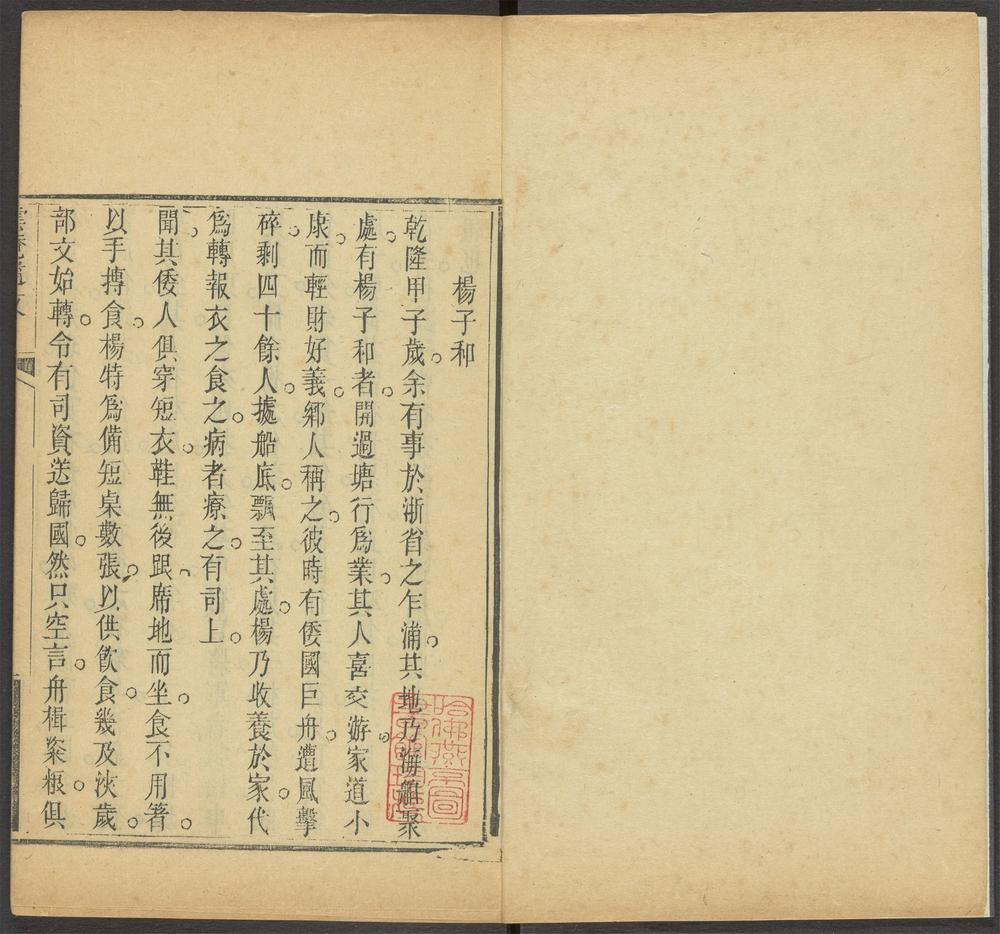 楊子和
乾隆甲子歲余有事於浙省之乍浦其地乃海艘聚
處有楊子和者開過塘行爲業其人喜交游家道小
康而輕財好義鄉人稱之彼時有倭國巨舟遭風擊
碎剩四十餘人據船底飄至其處楊乃收養於家代
爲轉報衣之食之病者療之有司上
聞其倭人俱穿短衣鞋無後跟席地而坐食不用箸
以手摶食楊特爲備短桌數張以供飮食幾及浹歲
部文始轉令有司資送歸國然只空言舟楫粢粻俱
哈佛燕京圖